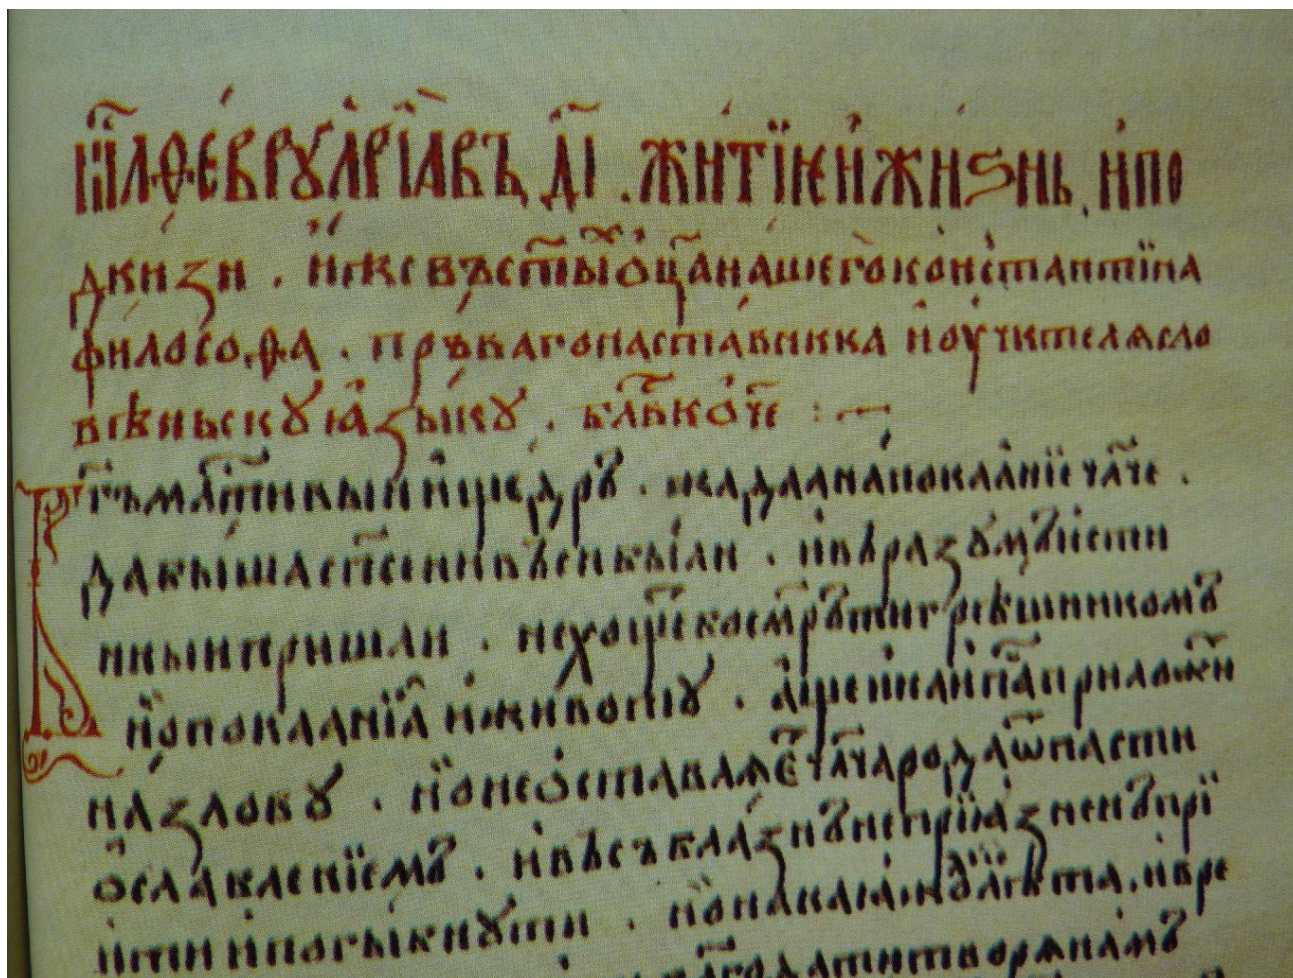 мц҃а феврꙋарїа въ д҃і . житїе и жиꙁнь . и по
двиꙁи . иже въ ст҃ыⷯ ѡц҃а нашего константїна
философа . пръваго наставника и оучителѧ сло
вѣньскꙋ ꙗꙁыкꙋ . бл҃вв ѻч҃е :—
Г҃ь млⷭ҇тивыи и щедръ . жадаѧ на покаанїе чл҃че .
да бышѧ сп҃сени въси были . и въ раꙁꙋмъ исти
нныи пришли . не хоще бо смр҃ти грѣшникомъ
нѡ покаанїа и животꙋ . аще и наипⷶ҇а прилежи
на ꙁлобꙋ . нѡ не оставлѧеⷮ чл҃ча рода ѿпасти
ѡслабленїемъ . и въ съблаꙁнъ непрїаꙁненъ прї
ити и погыбнꙋти . нѡ на каꙗждо лѣта, и вре
бл҃годати творѧ намъ